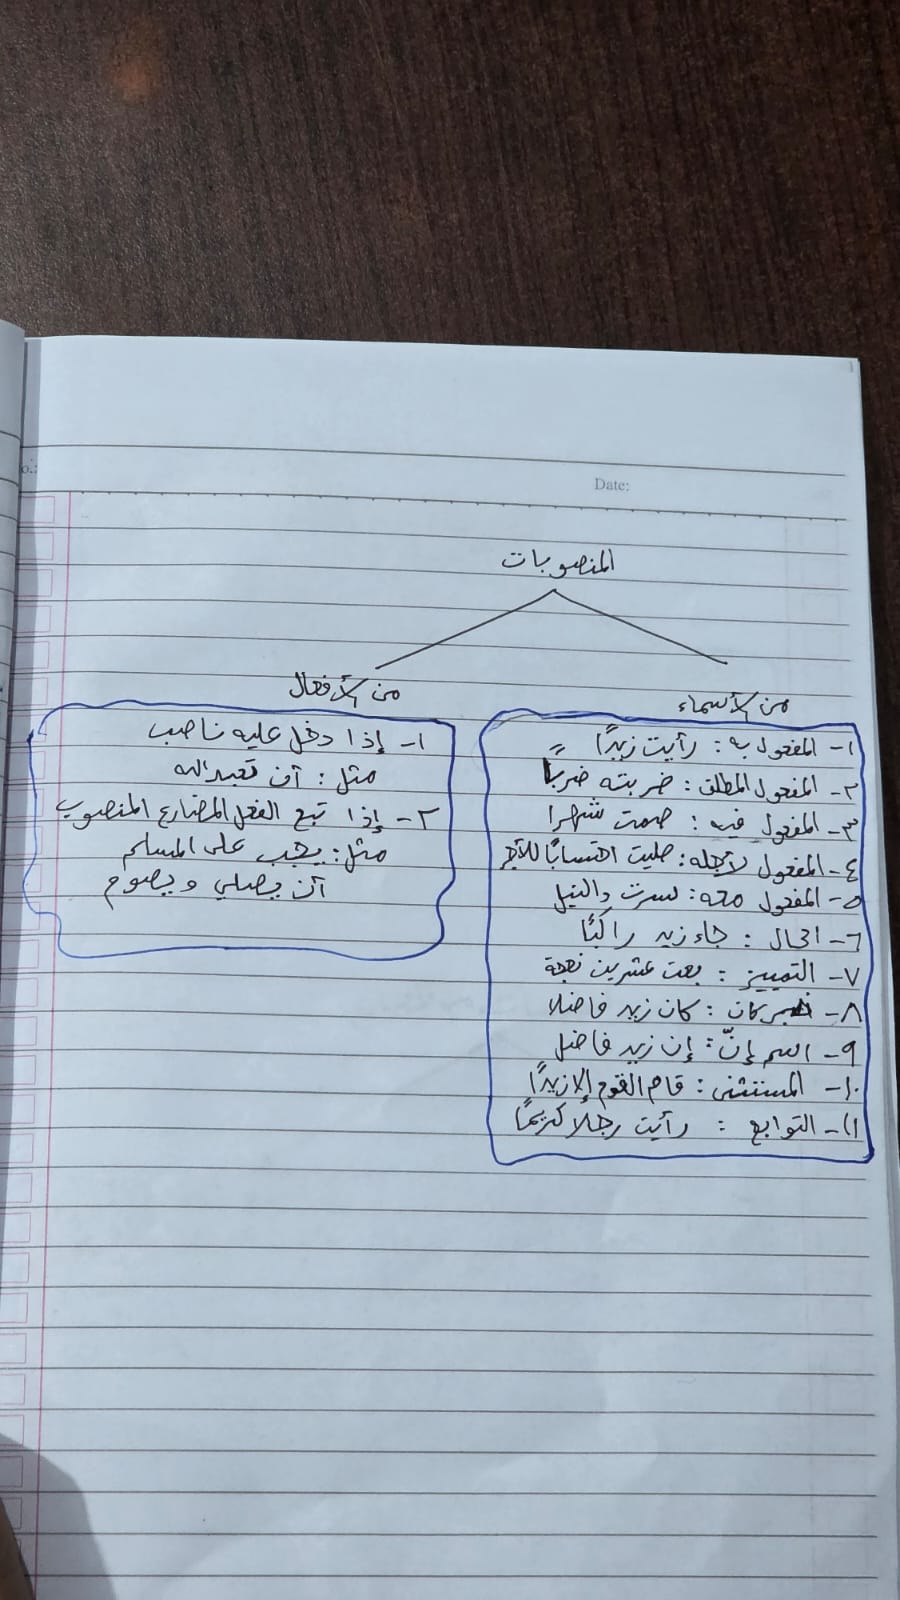 o.:
Date:
المنصوبات
من الأسماء
١- المفعول به : رأيت زيدًا
٢- المفعول المطلق : ضربته ضربًا
٣- المفعول فيه : صمت شهرا
٤- المفعول لأجله : صليت احتسابًا للأجر
٥- المفعول معه : سرت والنيل
٦- الحال : جاء زيد راكبًا
٧- التمييز : بعت عشرين نعجة
٨- خبر كان : كان زيد فاضلا
٩- اسم إنّ : إن زيد فاضل
١٠- المستثنى : قام القوم إلا زيدًا
١١- التوابع : رأيت رجلا كريمًا
من الأفعال
١- إذا دخل عليه ناصب
مثل : أن تعبد الله
٢- إذا تبع الفعل المضارع المنصوب
مثل : يجب على المسلم
أن يصلي و يصوم